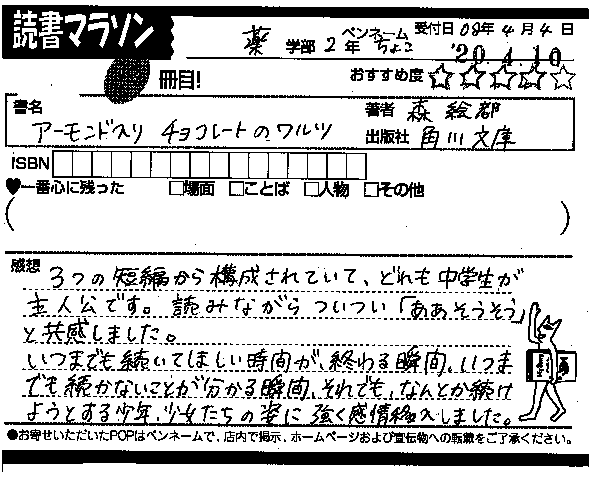 読書マラソン
薬 学部 2 年 ペンネーム ちょこ 受付日 08年 4月 4日
'20.4.10
冊目!
おすすめ度 ☆☆☆☆☆
書名
アーモンド入り チョコレートのワルツ
著者 森 絵都
出版社 角川文庫
ISBN
♥一番心に残った □場面 □ことば □人物 □その他
( )
感想
3つの短編から構成されていて、どれも中学生が
主人公です。読みながらついつい「ああそうそう」
と共感しました。
いつまでも続いてほしい時間が、終わる瞬間、いつま
でも続かないことが分かる瞬間、それでも、なんとか続け
ようとする少年、少女たちの姿に強く感情移入しました。
●お寄せいただいたPOPはペンネームで、店内で掲示、ホームページおよび宣伝物への転載をご了承ください。